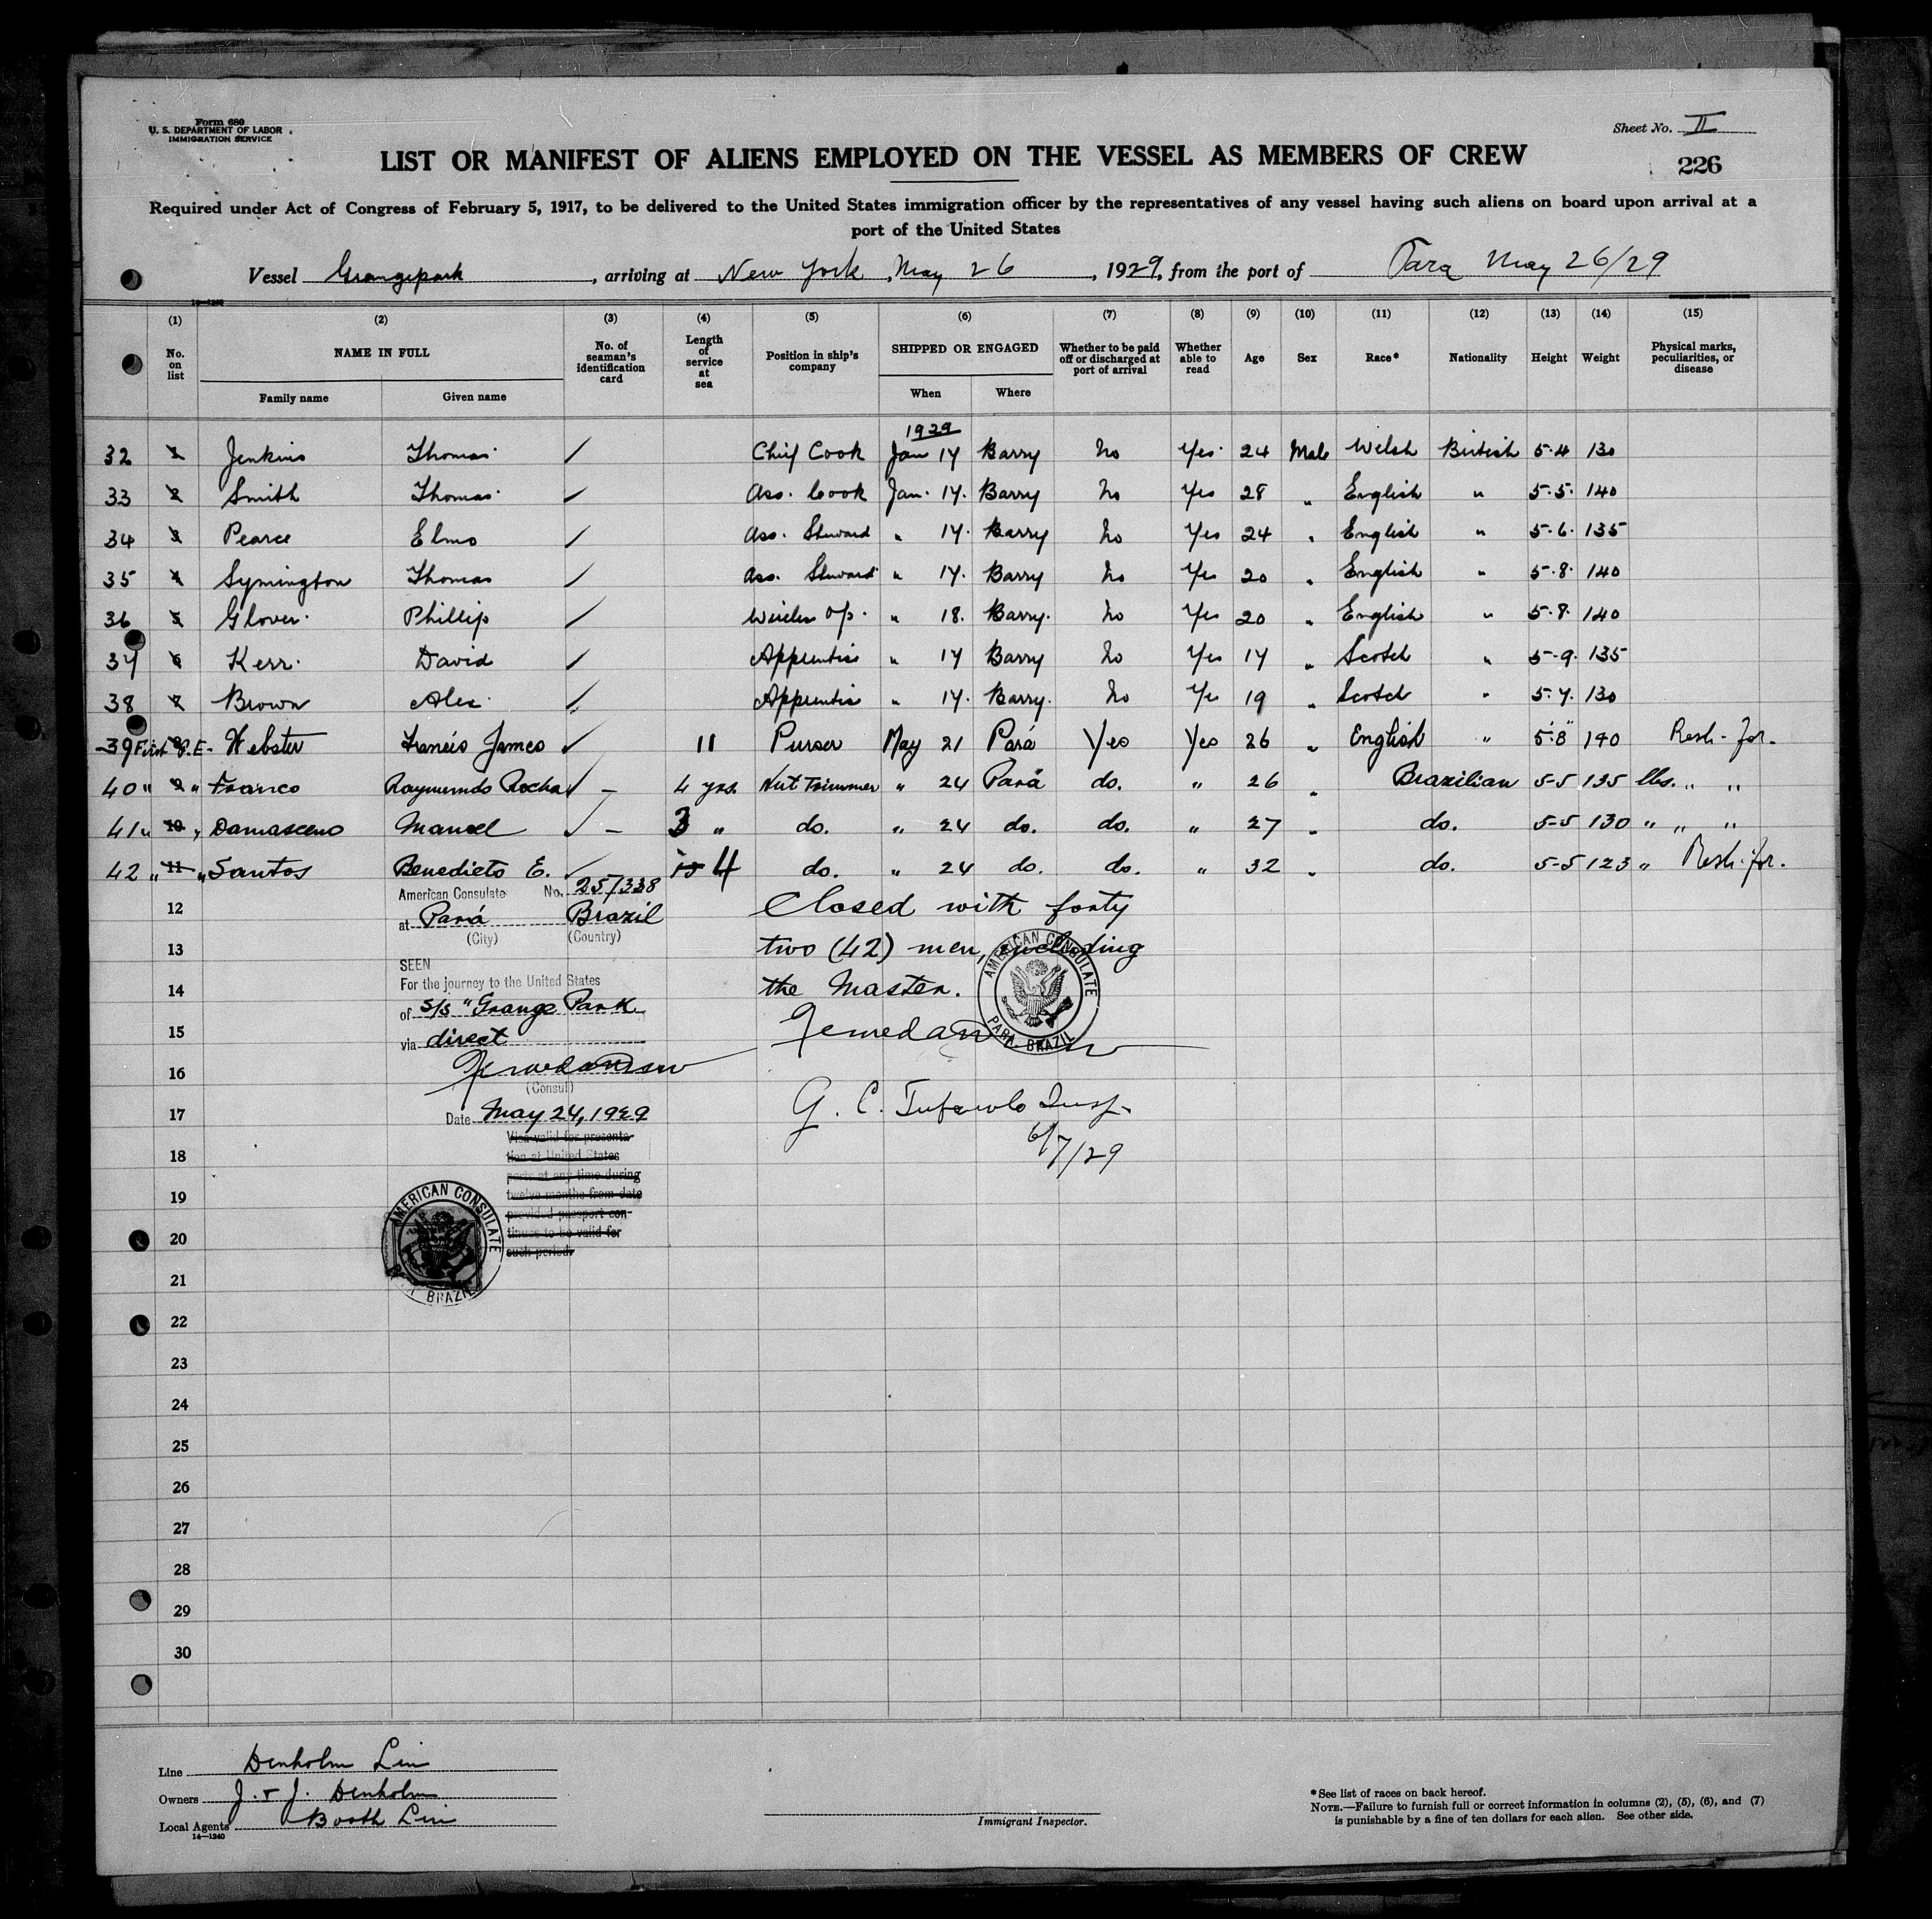 Form 680
U. S. DEPARTMENT OF LABOR
IMMIGRATION SERVICE
Sheet No. II
LIST OR MANIFEST OF ALIENS EMPLOYED ON THE VESSEL AS MEMBERS OF CREW
226
Required under Act of Congress of February 5, 1917, to be delivered to the United States immigration officer by the representatives of any vessel having such aliens on board upon arrival at a
port of the United States
Vessel Grangepark, arriving at New York, May 26, 1929, from the port of Para May 26/29
(1) (2) (3) (4) (5) (6) (7) (8) (9) (10) (11) (12) (13) (14) (15)
No. on list NAME IN FULL Family name Given name No. of seaman's identification card Length of service at sea Position in ship's company SHIPPED OR ENGAGED When Where Whether to be paid off or discharged at port of arrival Whether able to read Age Sex Race* Nationality Height Weight Physical marks, peculiarities, or disease
1929
32 1 Jenkins Thomas ✓ Chief Cook Jan 17 Barry No Yes 24 Male Welsh British 5.4 130
33 2 Smith Thomas ✓ Ass. Cook Jan. 17. Barry No Yes 28 " English " 5.5. 140
34 3 Pearce Elmo ✓ Ass. Steward " 17. Barry No Yes 24 " English " 5.6. 135
35 4 Symington Thomas ✓ Ass. Steward " 17. Barry No Yes 20 " English " 5.8. 140
36 5 Glover Phillip ✓ Wireless Op. " 18. Barry. No Yes 20 " English " 5.8. 140
37 6 Kerr. David ✓ Apprentice " 17 Barry No Yes 17 " Scotch " 5.9. 135
38 7 Brown Alec ✓ Apprentice " 17. Barry. No Yes 19 " Scotch " 5.7. 130
39 First P.E. Webster Francis James ✓ 11 Purser May 21 Pará Yes Yes 26 " English " 5'8" 140
40 " 9 " Franco Raymundo Rocha ✓ – 4 yrs. Nut Trimmer " 24 Pará do. " 26 " Brazilian 5-5 135 lbs. " "
41 " 10 " Damasceno Manoel ✓ – 3 " do. " 24 do. do. " 27 " do. 5-5 130 " " "
42 " 11 " Santos Benedicto E. ✓ 4 do. " 24 do. do. " 32 " do. 5-5 123 "
American Consulate No. 257338
at Pará Brazil
(City) (Country)
SEEN
For the journey to the United States
of S/S "Grange Park
via direct
(Consul)
Date May 24, 1929
Visa valid for presenta-
tion at United States
ports at any time during
twelve months from date
provided passport con-
tinues to be valid for
such period.
AMERICAN CONSULATE
PARA, BRAZIL
Closed with forty
two (42) men, including
the Master.
AMERICAN CONSULATE
PARA, BRAZIL
G. C. Insp.
6/7/29
12
13
14
15
16
17
18
19
20
21
22
23
24
25
26
27
28
29
30
Line Denholm Line
Owners J. & J. Denholm
Local Agents Booth Line
14—1240
Immigrant Inspector.
*See list of races on back hereof.
NOTE.—Failure to furnish full or correct information in columns (2), (5), (6), and (7)
is punishable by a fine of ten dollars for each alien. See other side.